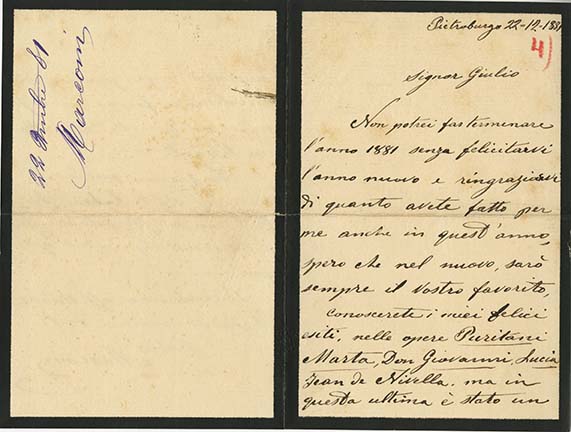 22 81
Marconi
Pietroburgo 22-12.1881
Signor Giulio
Non potrei far terminare
l'anno 1881 senza felicitarvi
l'anno nuovo e ringraziarvi
di quanto avete fatto per
me anche in quest'anno,
spero che nel nuovo, sarò
sempre il vostro favorito,
Conoscerete i miei felici
esiti, nelle opere Puritani
Marta, Don Giovanni, Lucia
Jean de Nivella. ma in
questa ultima è stato un